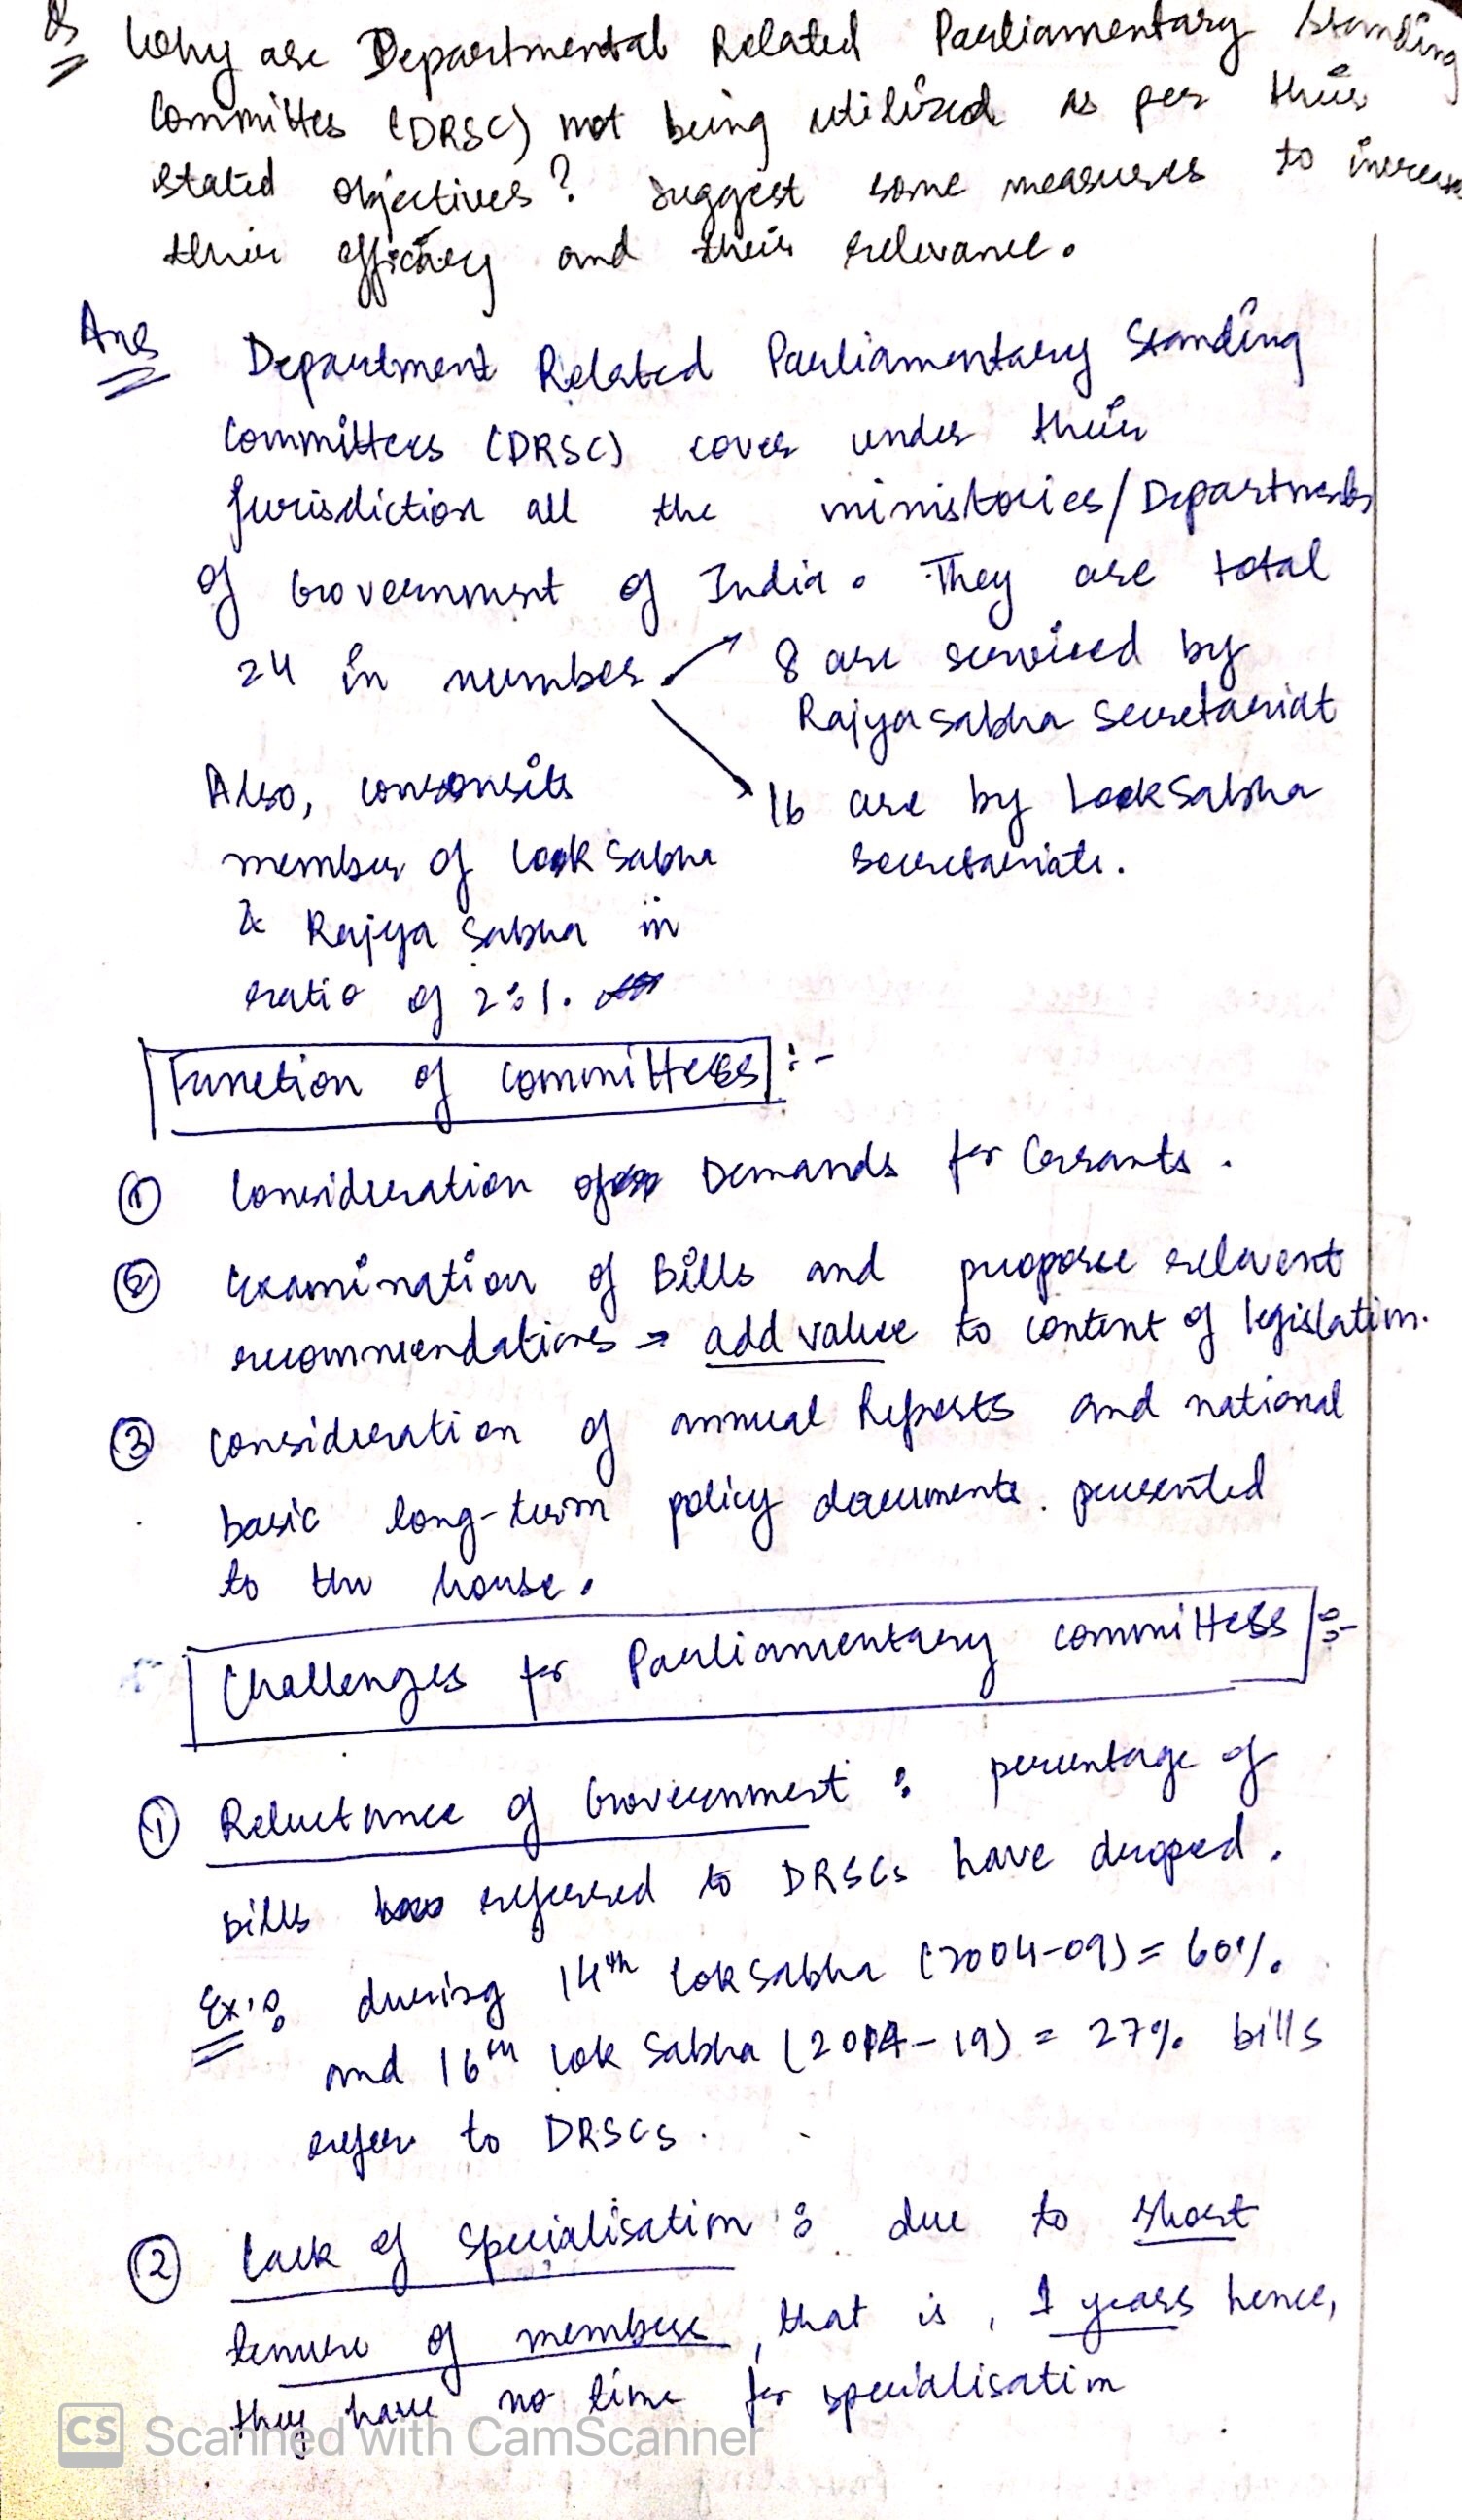 Q Why are Departmental Related Parliamentary Standing
Committes (DRSC) not being utilized as per their
stated objectives? Suggest some measures to increase
their efficacy and their relevance.
Ans Department Related Parliamentary Standing
Committees (DRSC) cover under their
jurisdiction all the ministories/Departments
of Government of India. They are total
24 in number
8 are serviced by
Rajya sabha secretariat
16 are by Look Sabha
secretariate.
Also,
member of Look Sabha
& Rajya Sabha in
ratio of 2:1.
Function of committees :-
① Consideration of Demands for Grants.
② Examination of Bills and propose relevent
recommendations → add value to content of legislation.
③ consideration of annual Reports and national
basic long-term policy documents presented
to the house.
Challenges for Parliamentary committees :-
① Reluctance of Government : percentage of
bills referred to DRSCs have droped.
Ex:- during 14th Lok Sabha (2004-09) = 60%.
and 16th Lok Sabha (2014-19) = 27% bills
refer to DRSCs.
② Lack of Specialisation : due to short
tenure of members, that is, 1 years hence,
they have no time for specialisation
CS Scanned with CamScanner